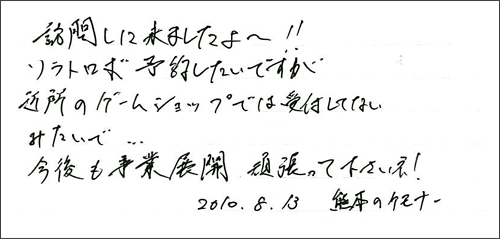 訪問しに来ましたよ～!!
ソラトロボ予約したいですが
近所のゲームショップでは受付してない
みたいで…
今後も事業展開 頑張って下さいネ!
2010.8.13 熊本のケモナー